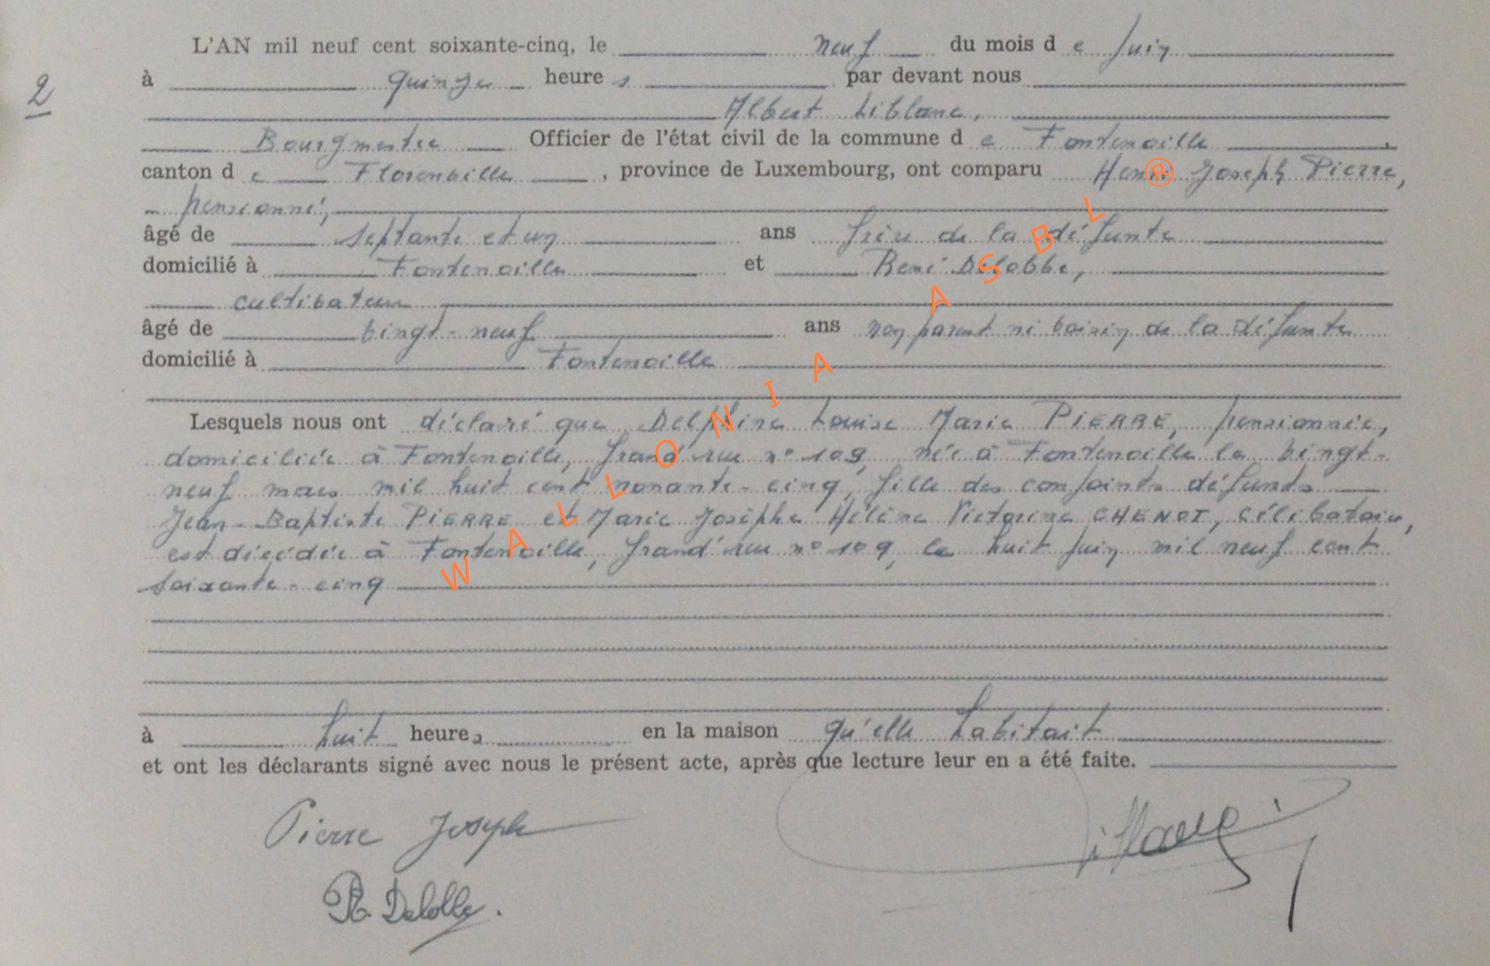 L'AN mil neuf cent soixante-cinq, le neuf du mois de Juin
2
à quinze heures par devant nous
Albert Liblanc,
Bourgmestre Officier de l'état civil de la commune de Fontenoille
canton de Florenville, province de Luxembourg, ont comparu Henri Joseph Pierre,
pensionné,
âgé de septante et un ans frère de la défunte
domicilié à Fontenoille et René Delobbe,
cultivateur
âgé de vingt-neuf ans non parent ni voisin de la défunte
domicilié à Fontenoille
Lesquels nous ont déclaré que Delphine Louise Marie PIERRE, pensionnée,
domiciliée à Fontenoille, Grand'rue n° 109, née à Fontenoille le vingt-
neuf mars mil huit cent nonante-cinq, fille des conjoints défunts
Jean-Baptiste PIERRE et Marie Josèphe Hélène Victorine CHENOT, célibataire,
est décédée à Fontenoille, Grand'rue n° 109, le huit juin mil neuf cent
soixante-cinq
à huit heures en la maison qu'elle habitait
et ont les déclarants signé avec nous le présent acte, après que lecture leur en a été faite.
Pierre Joseph
R. Delobbe.
WALLONIA ASBL ®